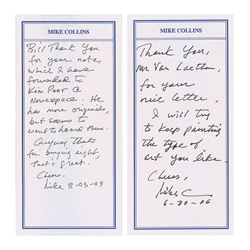 MIKE COLLINS
Bill Thank You
for your note,
which I have
forwarded to
Kim Poor @
Novaspace. He
has more originals,
but seems to
want to hoard them.
Anyway thats
for buying eight,
that's great.
Cheers.
Mike 8-03-09
MIKE COLLINS
Thank You,
Mr Van Laethem,
for your
nice letter.
I will try
to keep painting
the type of
art you like.
Cheers,
Mike C
6-30-06